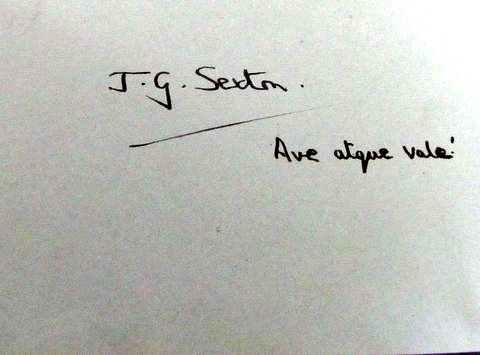 J. G. Sexton.
Ave atque vale!